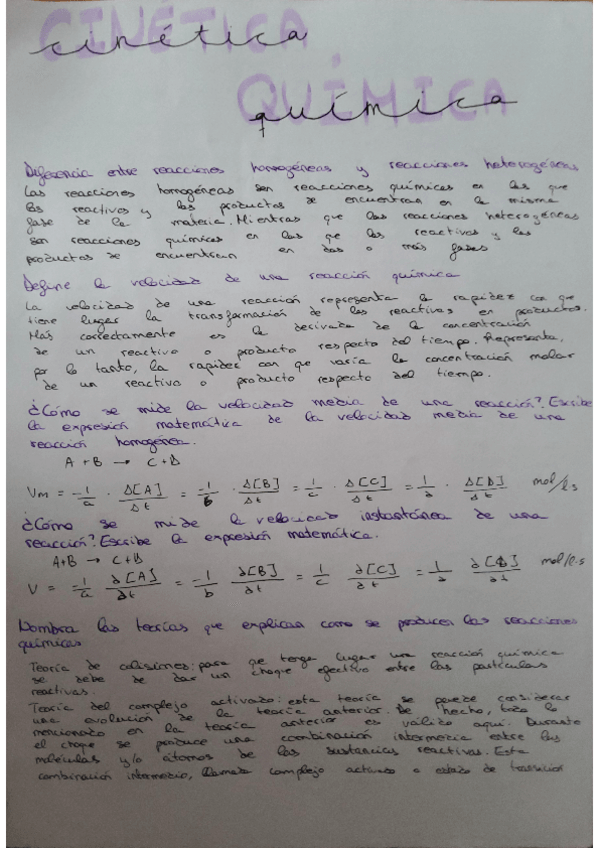 CINÉTICA
cinética
QUÍMICA
química
Diferencia entre reacciones homogéneas y reacciones heterogéneas
Las reacciones homogéneas son reacciones químicas en las que
los reactivos y los productos se encuentran en la misma
fase de la materia. Mientras que las reacciones heterogéneas
son reacciones químicas en las que los reactivos y los
productos se encuentran en dos o más fases
Define la velocidad de una reacción química
La velocidad de una reacción representa la rapidez con que
tiene lugar la transformación de los reactivos en productos.
Más correctamente es la derivada de la concentración
de un reactivo o producto respecto del tiempo. Representa,
por lo tanto, la rapidez con que varía la concentración molar
de un reactivo o producto respecto del tiempo.
¿Cómo se mide la velocidad media de una reacción? Escribe
la expresión matemática de la velocidad media de una
reacción homogénea.
A + B → C + D
Vm = -1/a · Δ[A]/Δt = -1/b · Δ[B]/Δt = 1/c · Δ[C]/Δt = 1/d · Δ[D]/Δt mol/l·s
¿Cómo se mide la velocidad instantánea de una
reacción? Escribe la expresión matemática.
A+B → C+D
V = -1/a ∂[A]/∂t = -1/b ∂[B]/∂t = 1/c ∂[C]/∂t = 1/d ∂[D]/∂t mol/l·s
Nombra las teorías que explican como se producen las reacciones
químicas
Teoría de colisiones: para que tenga lugar una reacción química
se debe de dar un choque efectivo entre las partículas
reactivas.
Teoría del complejo activado: esta teoría se puede considerar
una evolución de la teoría anterior. De hecho, todo lo
mencionado en la teoría anterior es válido aquí. Durante
el choque se produce una combinación intermedia entre las
moléculas y/o átomos de las sustancias reactivas. Esta
combinación intermedio, llamada complejo activado o estado de transición